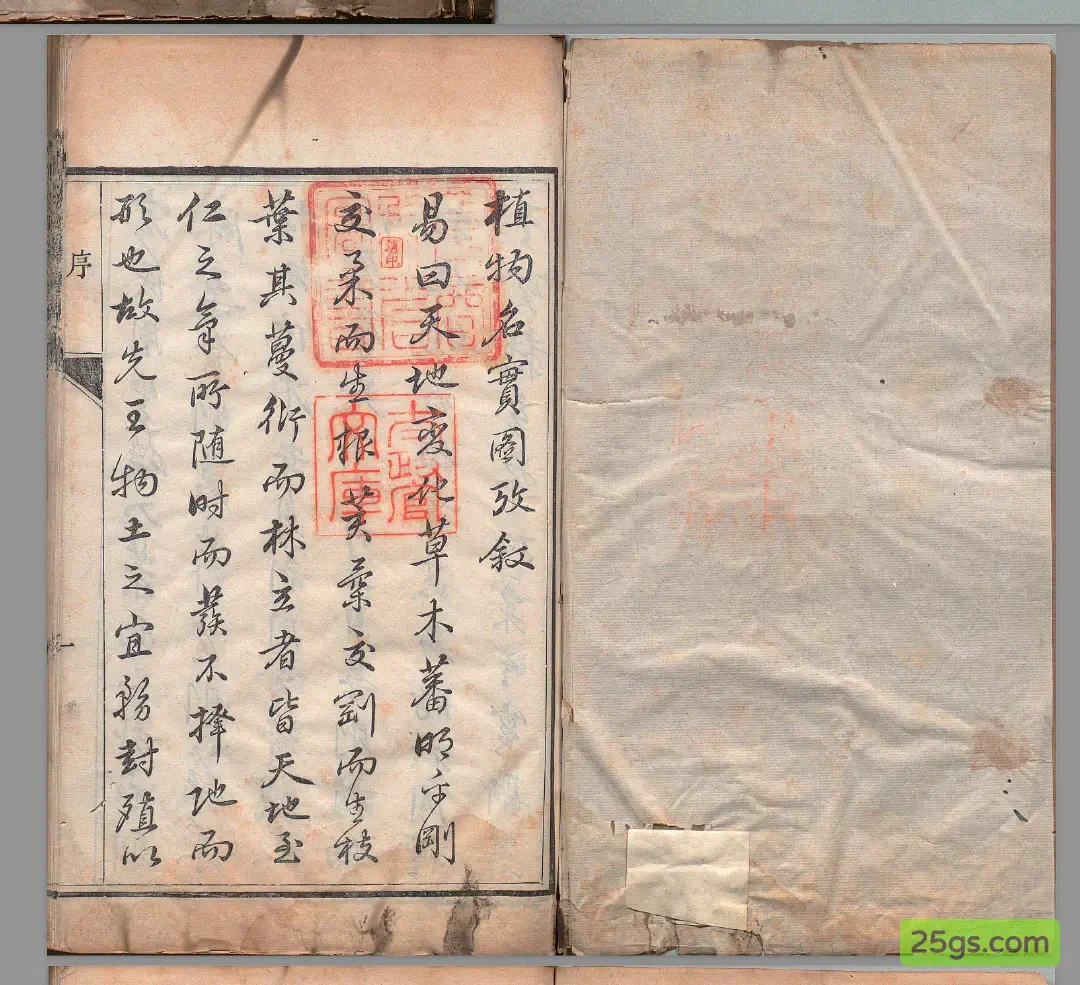 植物名實圖攷叙
易曰天地變化草木蕃明乎剛
交柔而生根荄柔交剛而生枝
葉其蔓衍而林立者皆天地至
仁之氣所随时而發不擇地而
形也故先王物土之宜務封殖以
序
25gs.com